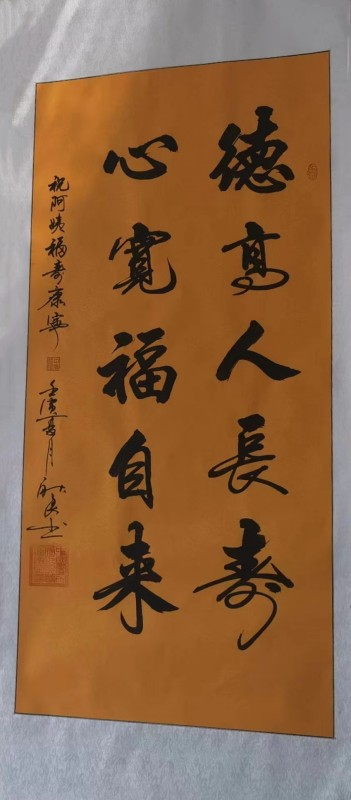 德高人長壽
心寬福自来
祝阿姨福壽康寧
壬寅夏月
書